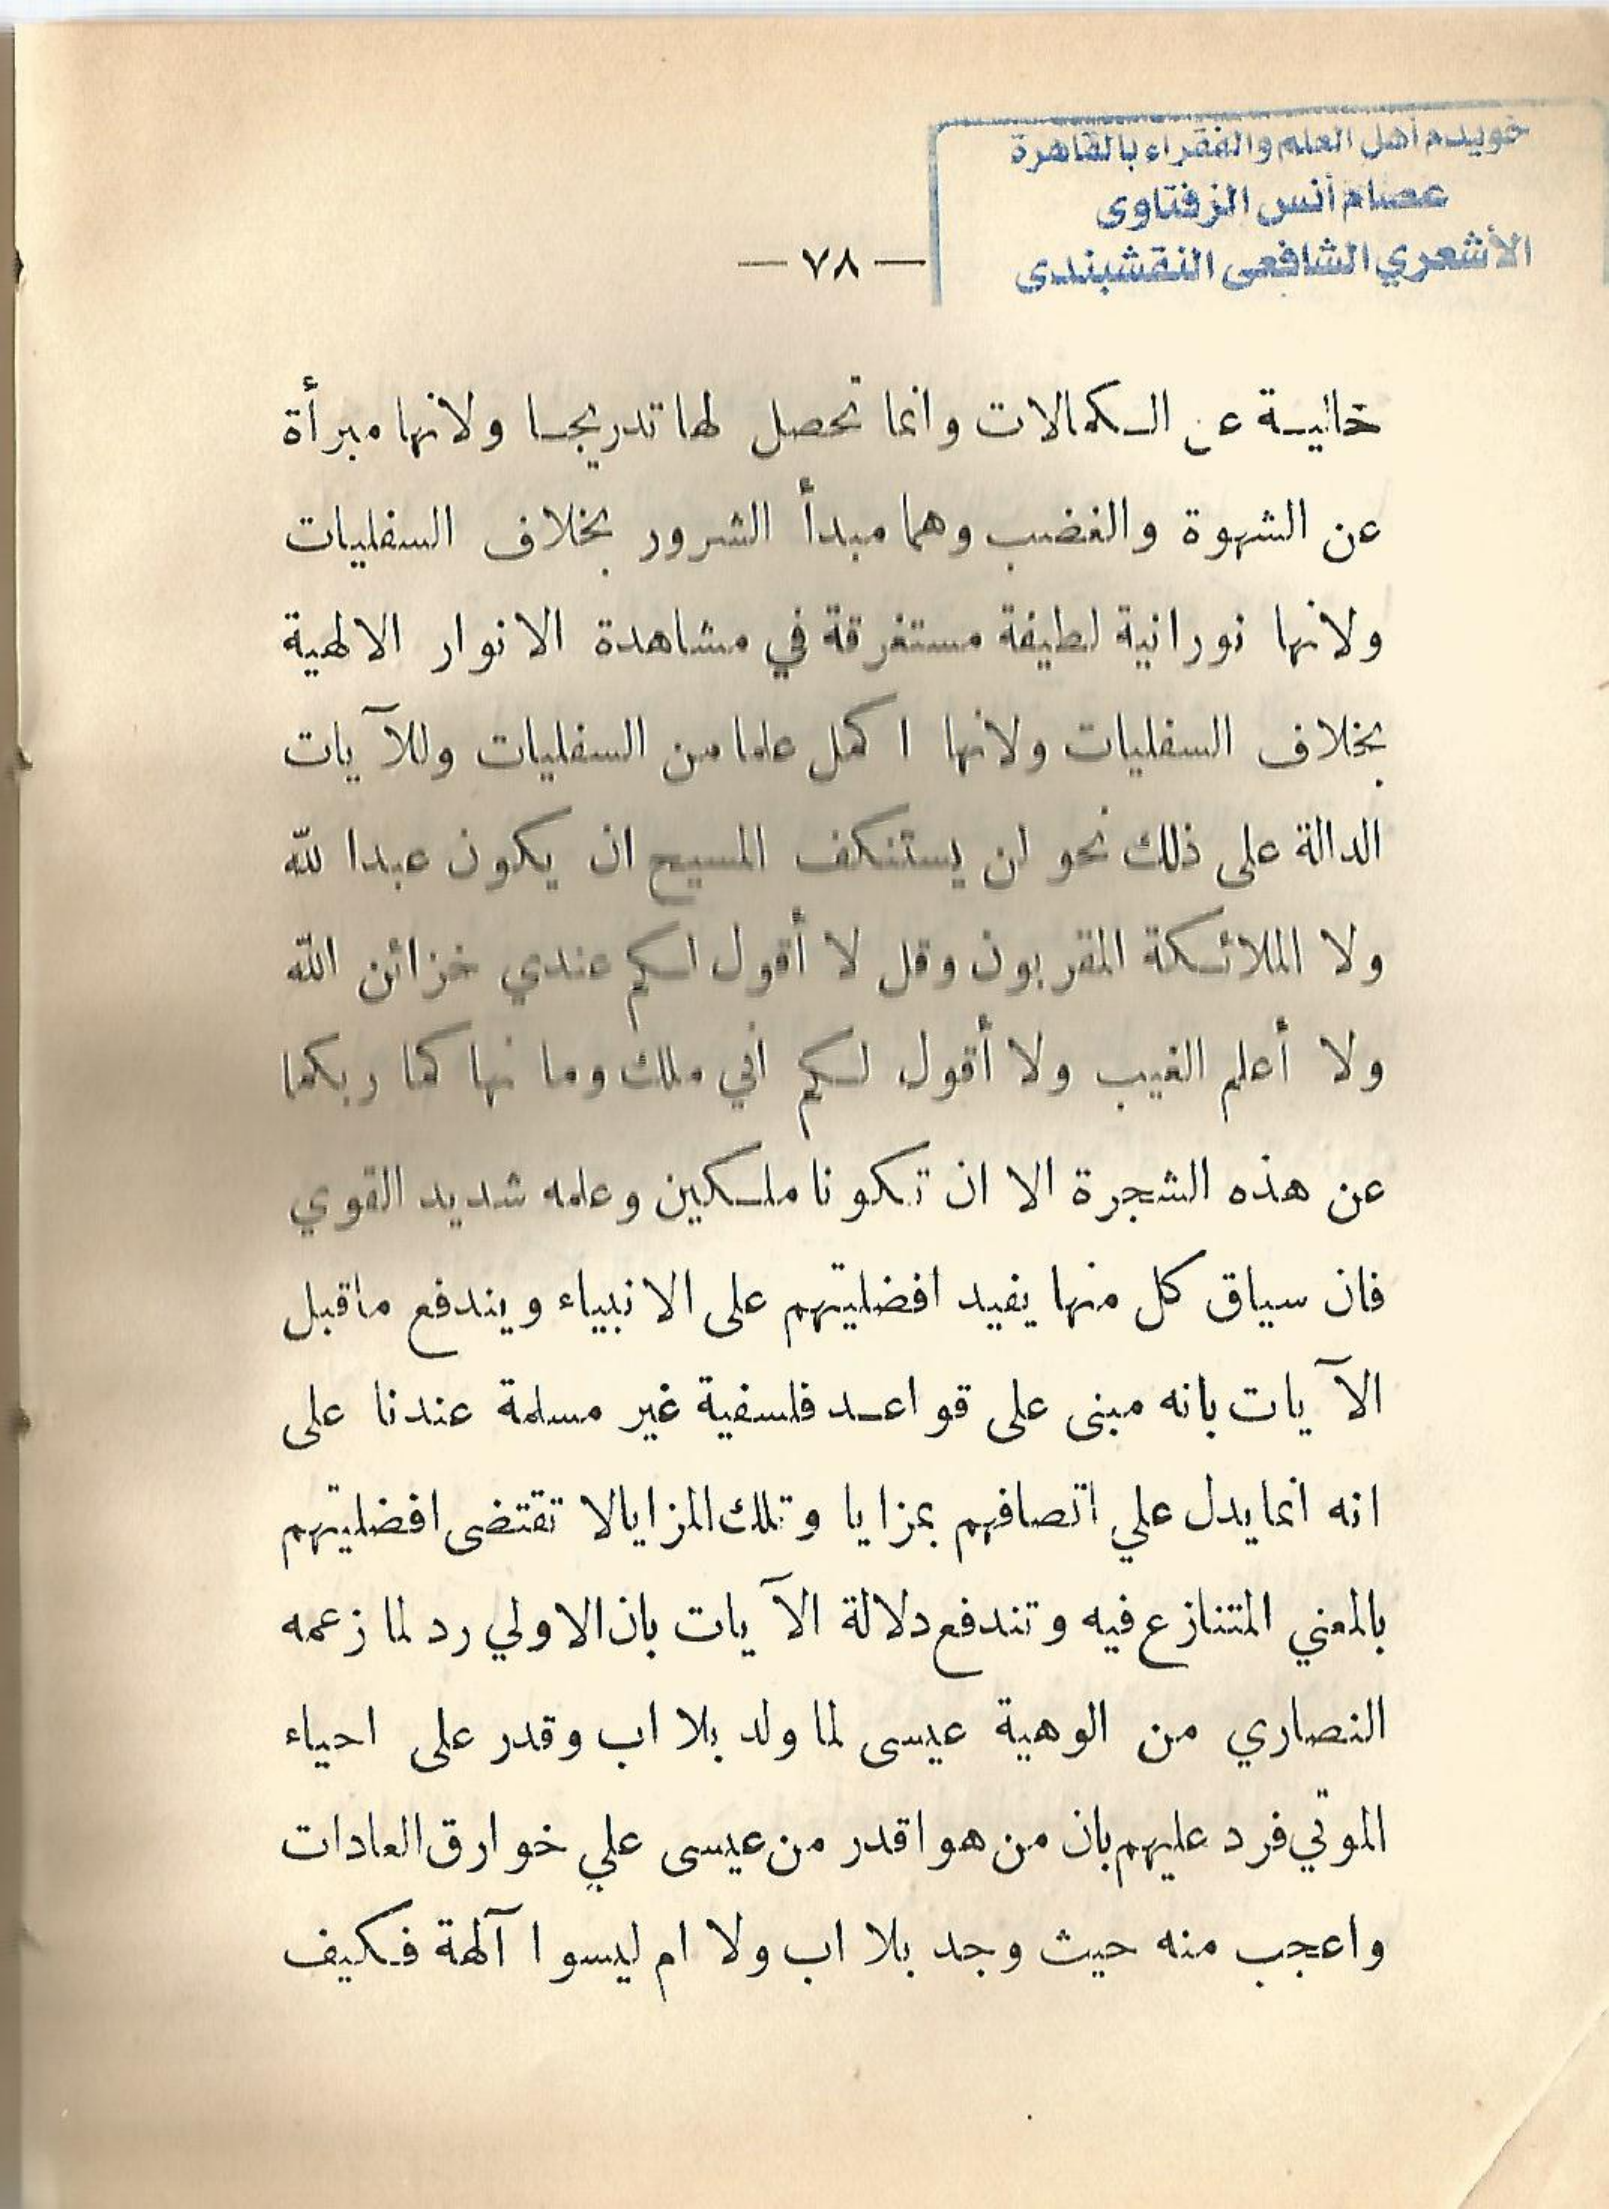 خويدم أهل العلم والفقراء بالقاهرة
عصام أنس الزفتاوى
الأشعري الشافعى النقشبندى
— ٧٨ —
خالية عن الكمالات وانما تحصل لها تدريجا ولانها مبرأة
عن الشهوة والغضب وهما مبدأ الشرور بخلاف السفليات
ولانها نورانية لطيفة مستغرقة في مشاهدة الانوار الالهية
بخلاف السفليات ولانها اكمل علما من السفليات وللآيات
الدالة على ذلك نحو لن يستنكف المسيح ان يكون عبدا لله
ولا الملائكة المقربون وقل لا أقول لكم عندي خزائن الله
ولا أعلم الغيب ولا أقول لكم اني ملك وما نهاكما ربكما
عن هذه الشجرة الا ان تكونا ملكين وعلمه شديد القوي
فان سياق كل منها يفيد افضليتهم على الانبياء ويندفع ماقبل
الآيات بانه مبنى على قواعد فلسفية غير مسلمة عندنا على
انه انما يدل علي اتصافهم بمزايا وتلك المزايا لا تقتضى افضليتهم
بالمعني المتنازع فيه وتندفع دلالة الآيات بان الاولي رد لما زعمه
النصاري من الوهية عيسى لما ولد بلا اب وقدر على احياء
الموتي فرد عليهم بان من هو اقدر من عيسى علي خوارق العادات
واعجب منه حيث وجد بلا اب ولا ام ليسوا آلهة فكيف